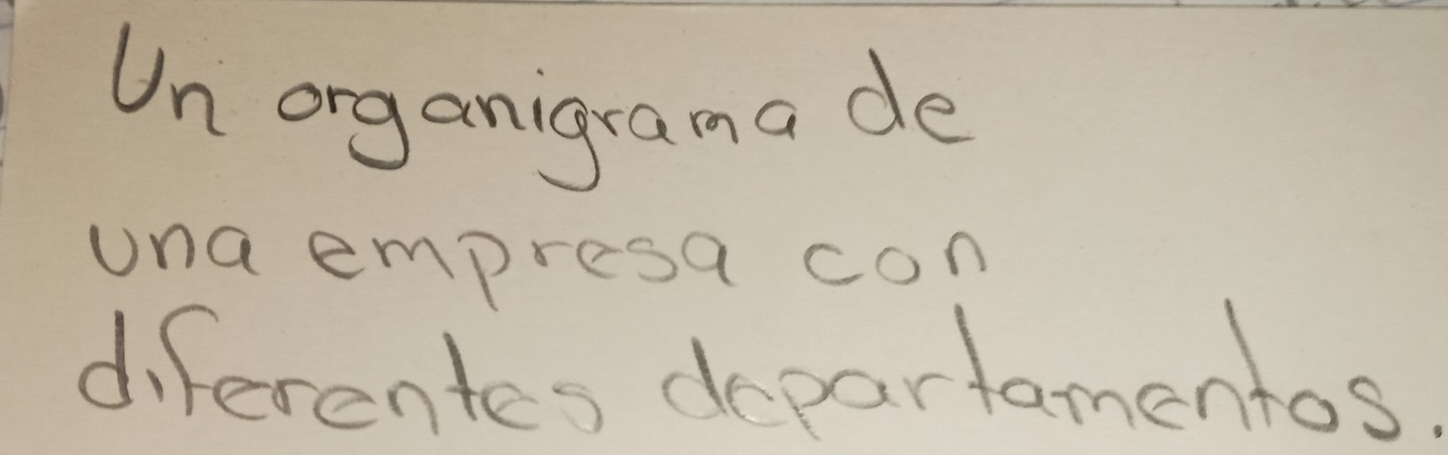 Un organigrama de
una empresa con
diferentes departamentos.